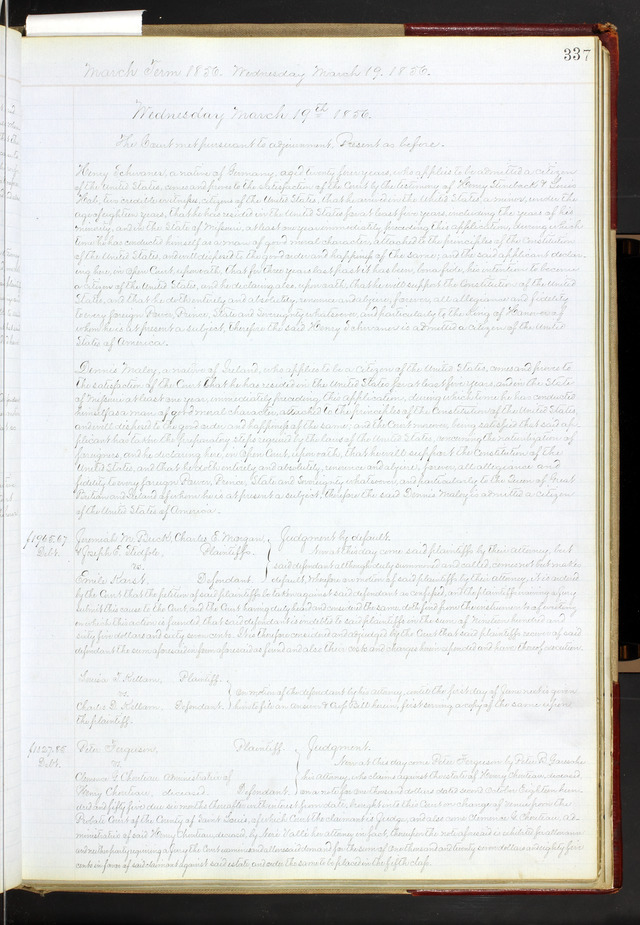 337
March Term 1856. Wednesday March 19. 1856.
Wednesday March 19th 1856.
The Court met pursuant to adjournment, Present as before.
Henry Schwaner, a native of Germany, aged twenty four years, who applies to be admitted a citizen
of the United States, comes and proves to the satisfaction of the Court by the testimony of Henry &
two credible witnesses, citizens of the United States, that he arrived in the United States a minor, under the
age of eighteen years, that he has resided in the United States for at least five years, including the years of his
minority, and in the State of Missouri, at least one year immediately preceding this application, during which
time he has conducted himself as a man of good moral character, attached to the principles of the Constitution
of the United States, and well disposed to the good order and happiness of the same; and the said applicant declar-
ing here, in open Court, upon oath, that for three years last past it has been, bona fide, his intention to become
a citizen of the United States, and he declaring also, upon oath, that he will support the Constitution of the United
States, and that he doth entirely and absolutely, renounce and abjure, forever, all allegiance and fidelity
to every foreign Power, Prince, State and Sovereignty whatsoever, and particularly to the King of Hanover of
whom he is at present a subject, therefore the said Henry Schwaner is admitted a citizen of the United
States of America.
Dennis Maley, a native of Ireland, who applies to be a citizen of the United States, comes and proves to
the satisfaction of the Court that he has resided in the United States for at least five years, and in the State
of Missouri at least one year, immediately preceding this application, during which time he has conducted
himself as a man of good moral character, attached to the principles of the Constitution of the United States,
and well disposed to the good order and happiness of the same; and the Court moreover being satisfied that said ap-
plicant has taken the preparatory steps required by the laws of the United States, concerning the naturalization of
foreigners, and he declaring here, in open Court, upon oath, that he will support the Constitution of the
United States, and that he doth entirely and absolutely, renounce and abjure, forever, all allegiance and
fidelity to every foreign Power, Prince, State and Sovereignty whatsoever, and particularly to the Queen of Great
Britain and Ireland of whom he is at present a subject, therefore the said Dennis Maley is admitted a citizen
of the United States of America.
$1965.67 Jeremiah M. Charles E. Morgan Judgment by default.
Debt. & Joseph E. Plaintiffs. Now at this day come said plaintiffs by their Attorney, but
vs. said defendant although duly summoned and called, comes not but makes
Emile Karst. Defendant. default. Wherefore on motion of said plaintiffs by their Attorney, it is ordered
by the Court that the petition of said plaintiffs be taken against said defendant as confessed, and the plaintiffs
submit this cause to the Court, and the Court having duly heard and considered the same, doth find from the instrument of writing
on which this action is founded that said defendant is indebted to said plaintiffs in the sum of Nineteen hundred and
sixty five dollars and sixty seven cents. It is therefore considered and adjudged by the Court that said plaintiffs recover of said
defendant the sum aforesaid in form aforesaid as found and also their costs and charges herein expended and have thereof execution.
Louisa T. Kellam, Plaintiff.
vs. On motion of the defendant by his attorney, until the first day of June next is given
Charles D. Kellam. Defendant. him to file an answer & Cross Bill herein, first serving a copy of the same upon
the plaintiff.
$1127.85 Peter Ferguson, Plaintiff. Judgment.
Debt. vs. Now at this day come Peter Ferguson by Peter R.
Chouteau Administrator of his Attorney, who claims against the estate of Henry Chouteau deceased,
Henry Chouteau, deceased. Defendant. on a note for one thousand dollars dated second October Eighteen hun-
dred and fifty five due six months thereafter with interest from date, brought into this Court on change of venue from the
Probate Court of the County of Saint Louis, of which Court the claimant is Judge, and also comes G. Chouteau, ad-
ministrator of said Henry Chouteau, deceased, by his attorney in fact,
and neither party requiring a jury the Court
cents in favor of said claimant against said estate, and orders the same to be placed in the fifth class.